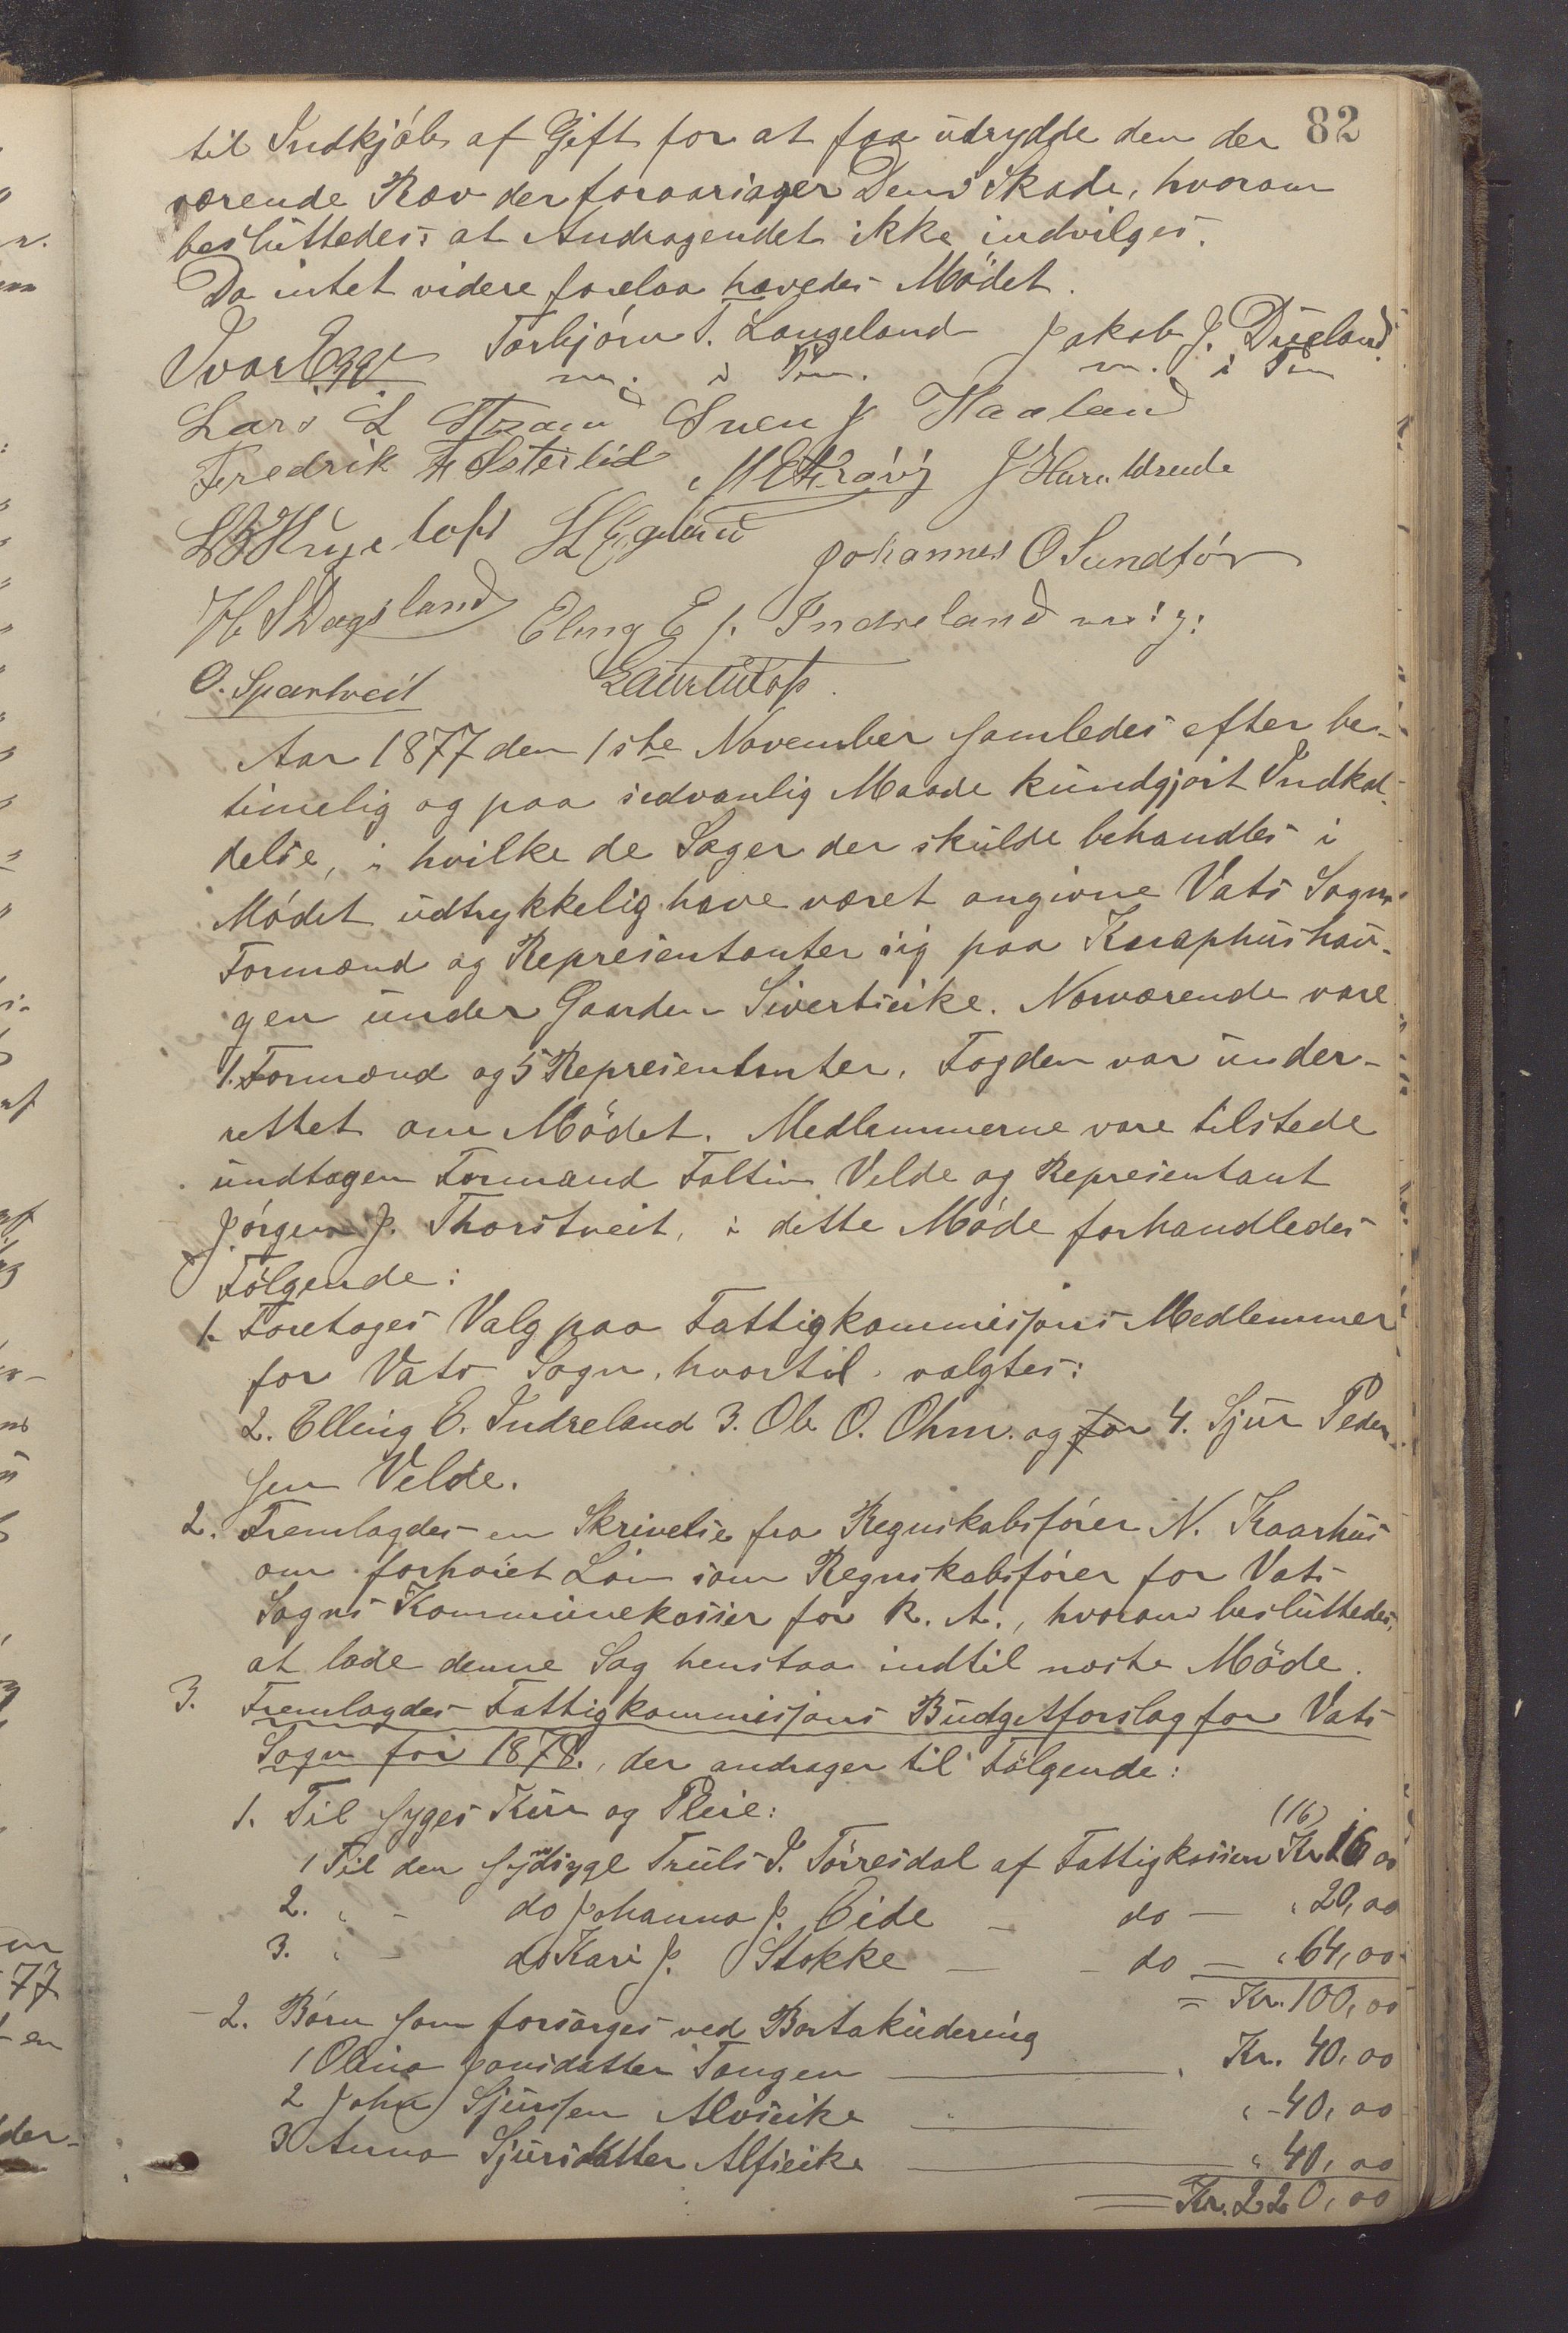 82
til Indkjøb af Gift for at faa udrydde den der
værende Ræv der foraarsager Dem Skade, hvorom
besluttedes at Andragendet ikke indvilges.
Da intet videre forelaa hævedes Mödet.
Ivar Egge Torbjørn T. Langeland Jakob J. Dueland
m. i Pen. m. i Pen
Lars L Strand Sven J Haaland
Fredrik F Østerlid J Haraldseide
L H Egeland Johannes O Sundför
H S Dagsland Elling E J. Indreland
O. Spartveit
Aar 1877 den 1ste November samledes efter be-
timelig og paa sedvanlig Maade kundgjort Indkal-
delse, i hvilke de Sager der skulde behandles i
Mødet udtrykkelig have været angivne Vats Sogns
Formænd og Repræsentanter sig paa Knaphushau-
gen under Gaarden Sivertseike. Nærværende vare
1. Formænd og 5 Repræsentanter. Fogden var under-
rettet om Mödet. Medlemmerne vare tilstede
undtagen Formand Faltin Velde og Representant
Jörgen J. Thorstveit, i dette Möde forhandledes
Følgende:
1. Foretoges Valg paa Fattigkommissions Medlemmer
for Vats Sogn, hvortil valgtes:
2. Elling E. Indreland 3. Ole O. Ohm. og for 4. Sjur Peder-
sen Velde.
2. Fremlagdes en Skrivelse fra Regnskabsfører N. Kaarhus
om forhøiet Løn som Regnskabsfører for Vats
Sogns Kommunekasser for R. A., hvorom besluttedes,
at lade denne Sag henstaa indtil næste Möde.
3. Fremlagdes Fattigkommisjons Budgetforslag for Vats
Sogn for 1878., der andrager til Følgende:
1. Til Syges Kur og Pleie:
(16)
1 Til den syge Truls J. Törresdal af Fattigkassen Kr 16 00
2. " - do Johanna J. Eide - do - " 20,00
3. " - do Kari J. Stokke - - do - " 64,00
= Kr. 100,00
- 2. Børn som forsørges ved Bortakudering
1 Olina Jonsdatter Tangen Kr. 40,00
2 John Sjursen Alvseike " 40,00
3 Anna Sjursdatter Alfseike " 40,00
Kr. 220,00